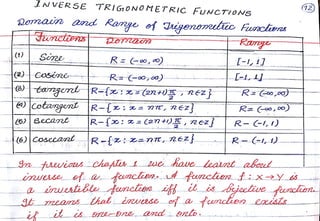 INVERSE TRIGONOMETRIC FUNCTIONS
92
Domain and Range of Trigonometric Functions
Functions Domain Range
(1) Sine R = (-∞, ∞) [-1, 1]
(2) Cosine R = (-∞, ∞) [-1, 1]
(3) tangent R-{x : x = (2n+1)π/2, n∈Z} R = (-∞, ∞)
(4) Cotangent R-{x : x = nπ, n∈Z} R = (-∞, ∞)
(5) Secant R-{x : x = (2n+1)π/2, n∈Z} R - (-1, 1)
(6) Cosecant R-{x : x = nπ, n∈Z} R - (-1, 1)
In previous chapter 1 we have learnt about
inverse of a function. A function f : X→Y is
a invertible function iff it is bijective function.
It means that inverse of a function exists
if it is one-one and onto.